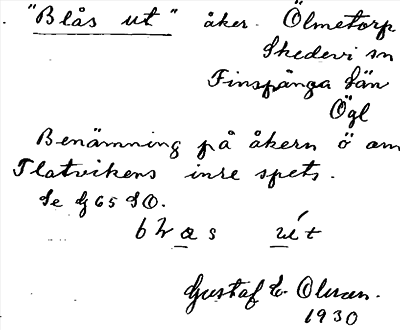 "Blås ut" åker. Ölmetorp
Skedevi sn
Finspånga län
Ögl
Benämning på åkern ö om
Flatvikens inre spets.
Se G 65 SO.
Gustaf E. Olsson.
1930